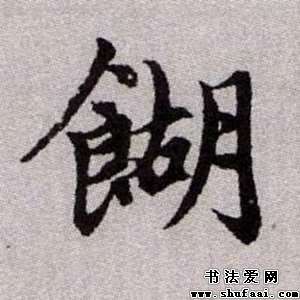 餬
书法爱网
www.shufaai.com